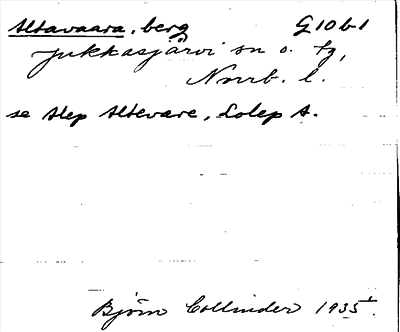 Altavaara, berg G10b1
Jukkasjärvi sn o. tg,
Norrb. l.
se Alep Altevare, Lolep A.
Björn Collinder 1935